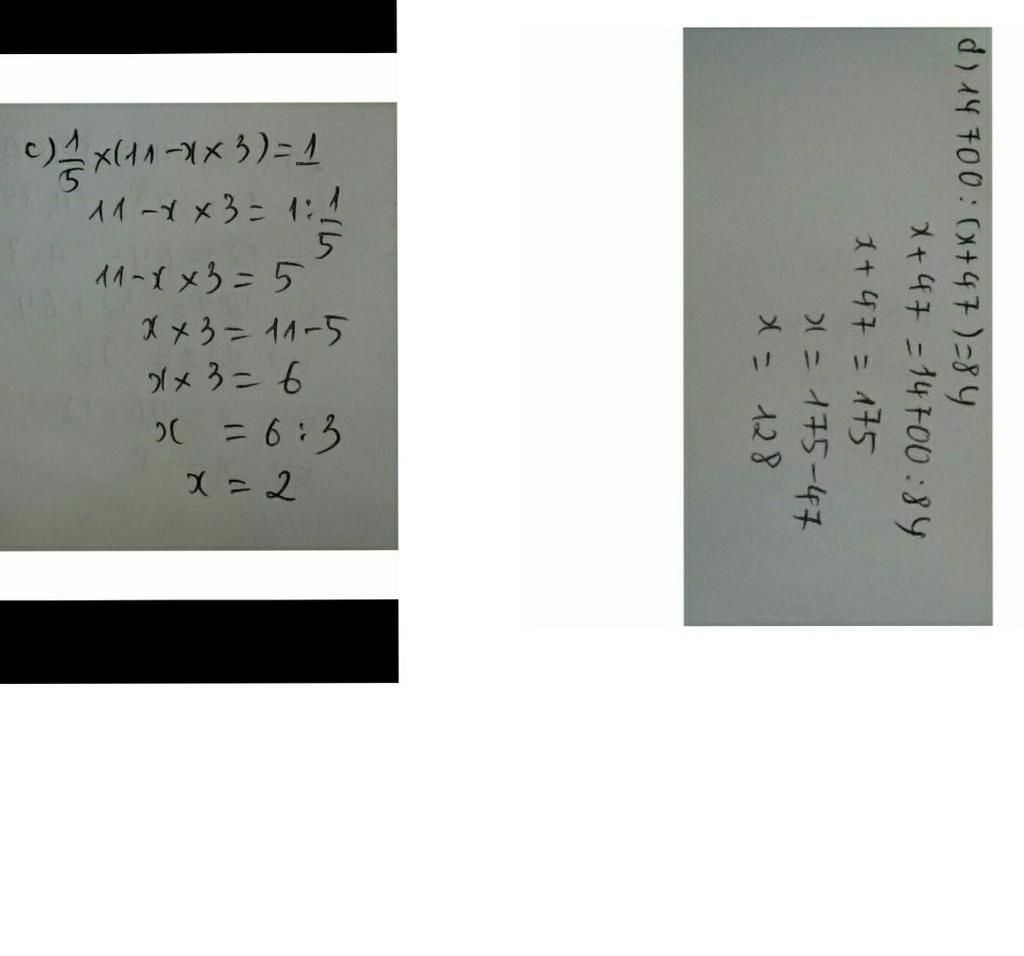 c) 1/5 × (11 - x × 3) = 1
11 - x × 3 = 1 : 1/5
11 - x × 3 = 5
x × 3 = 11 - 5
x × 3 = 6
x = 6 : 3
x = 2
d) 14 700 : (x + 47) = 84
x + 47 = 14700 : 84
x + 47 = 175
x = 175 - 47
x = 128